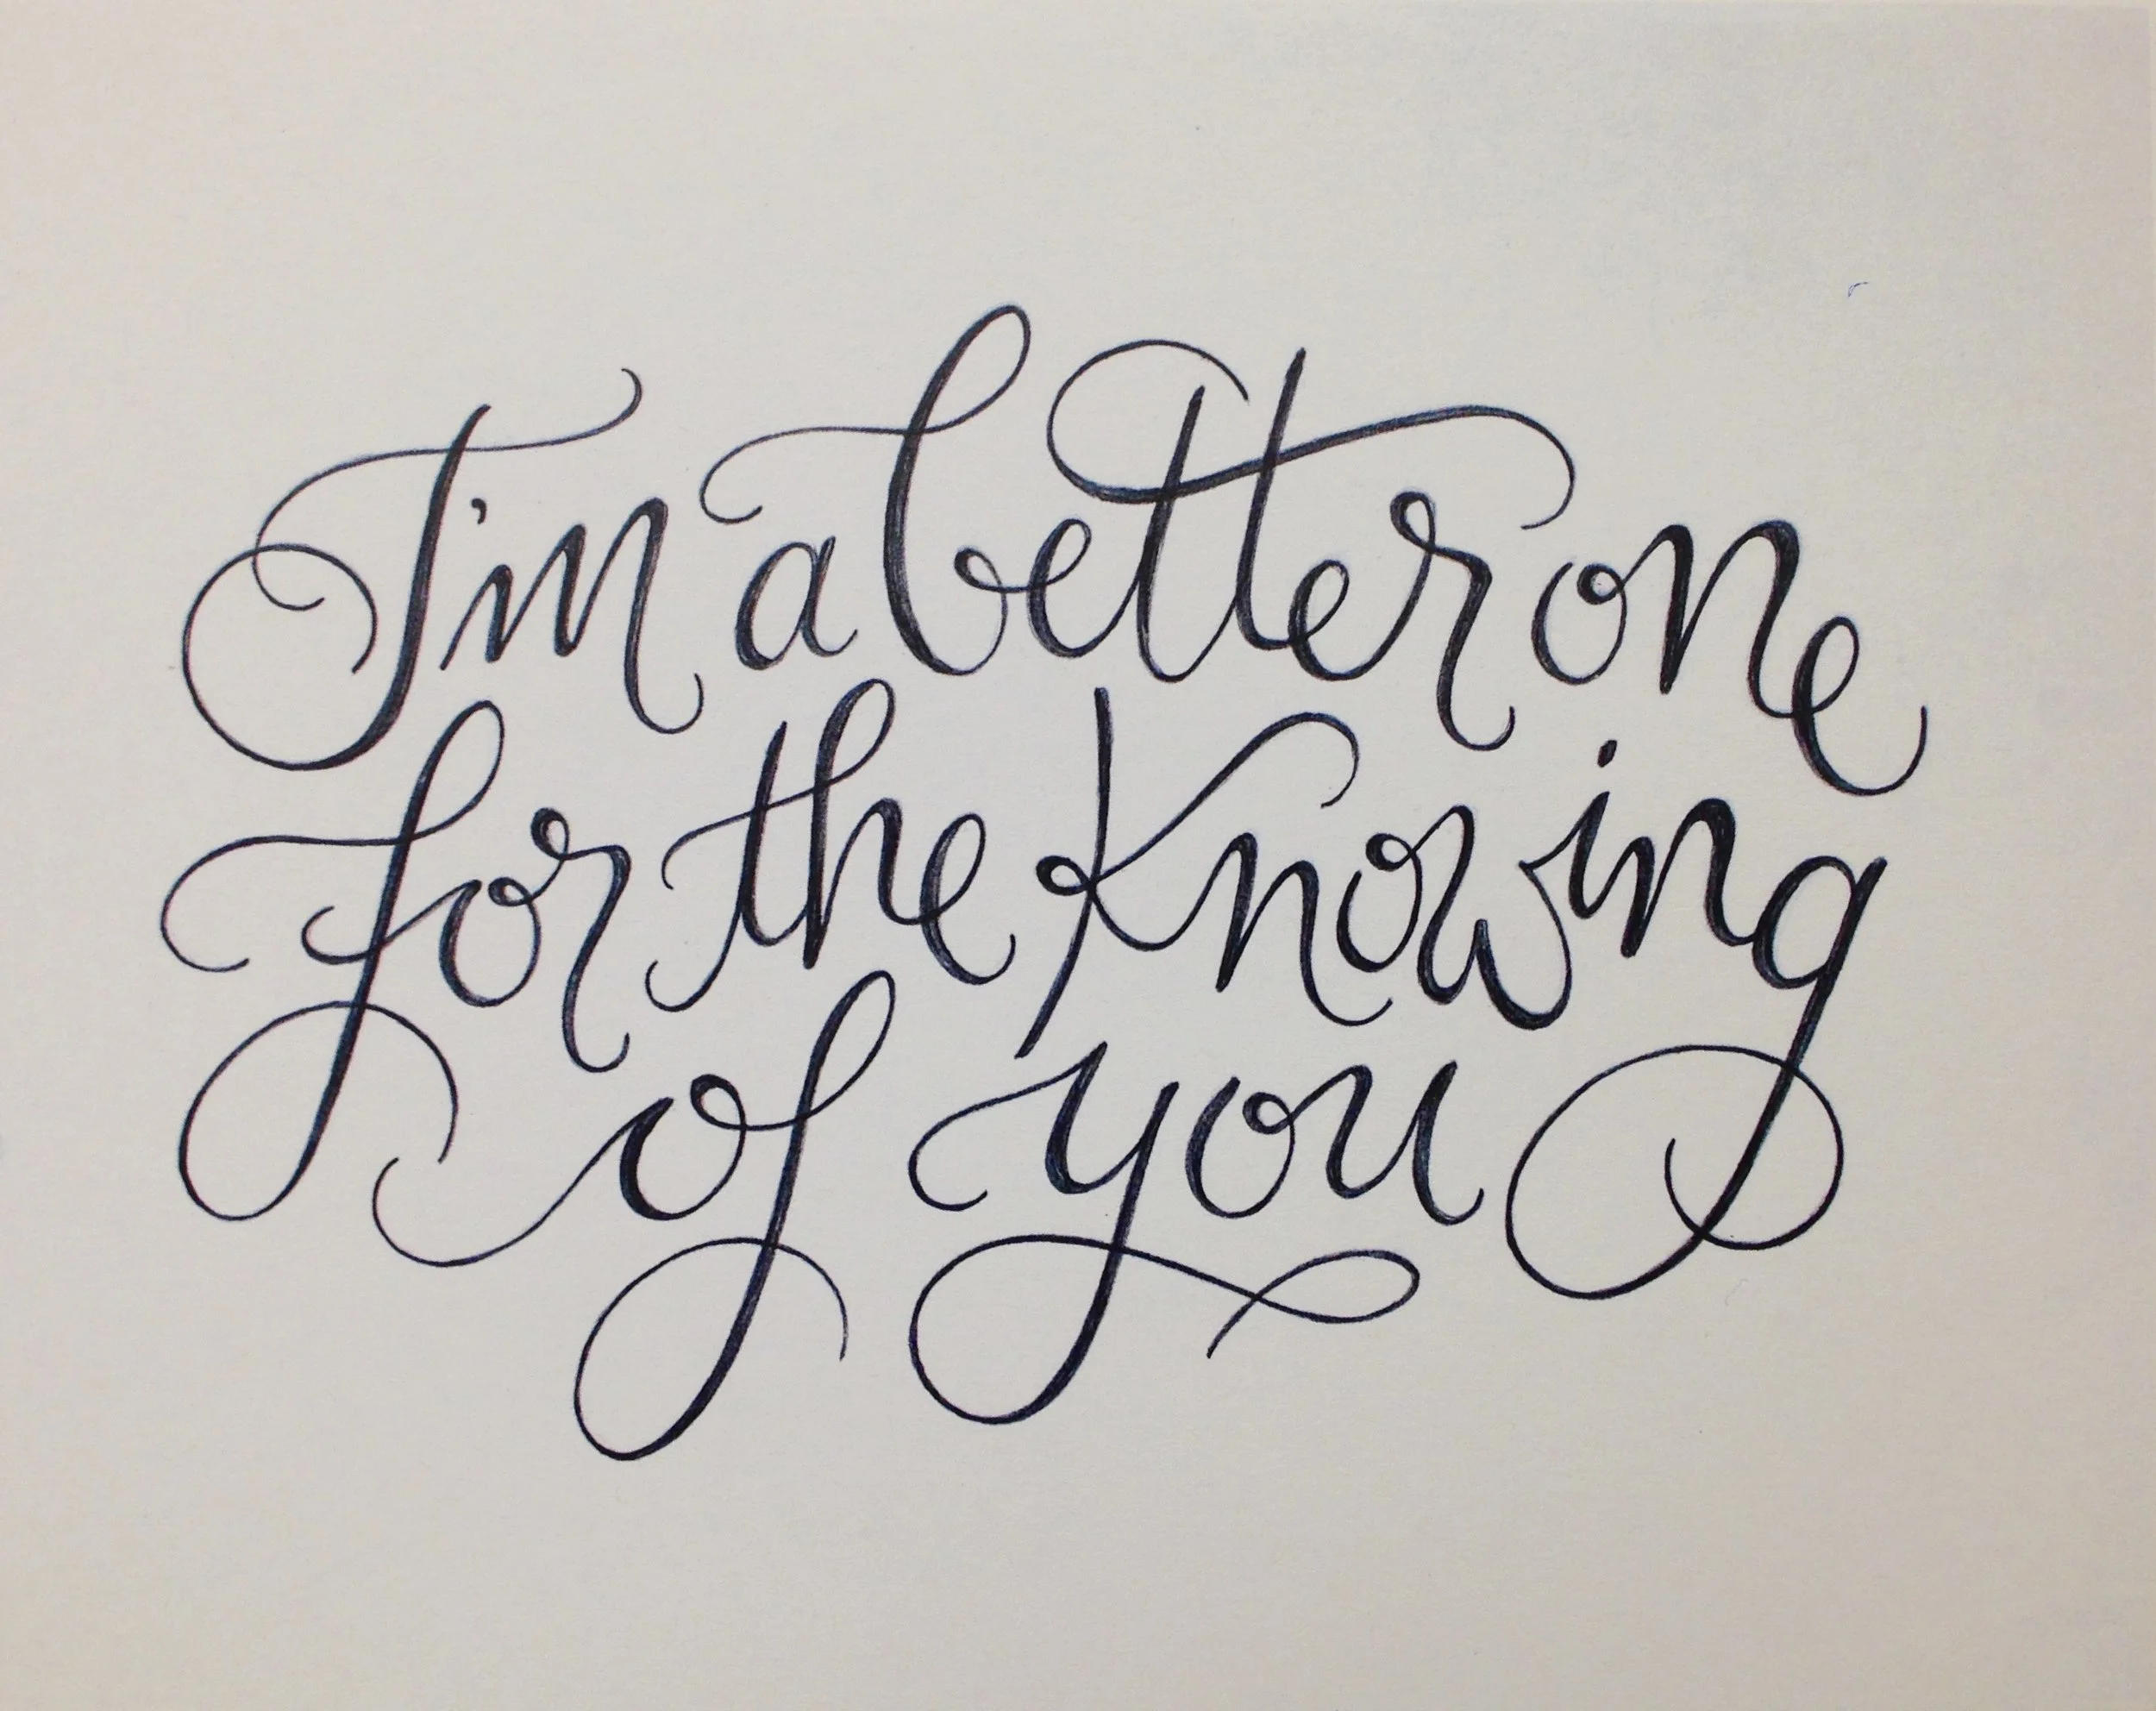 I'm a better one
for the knowing
of you